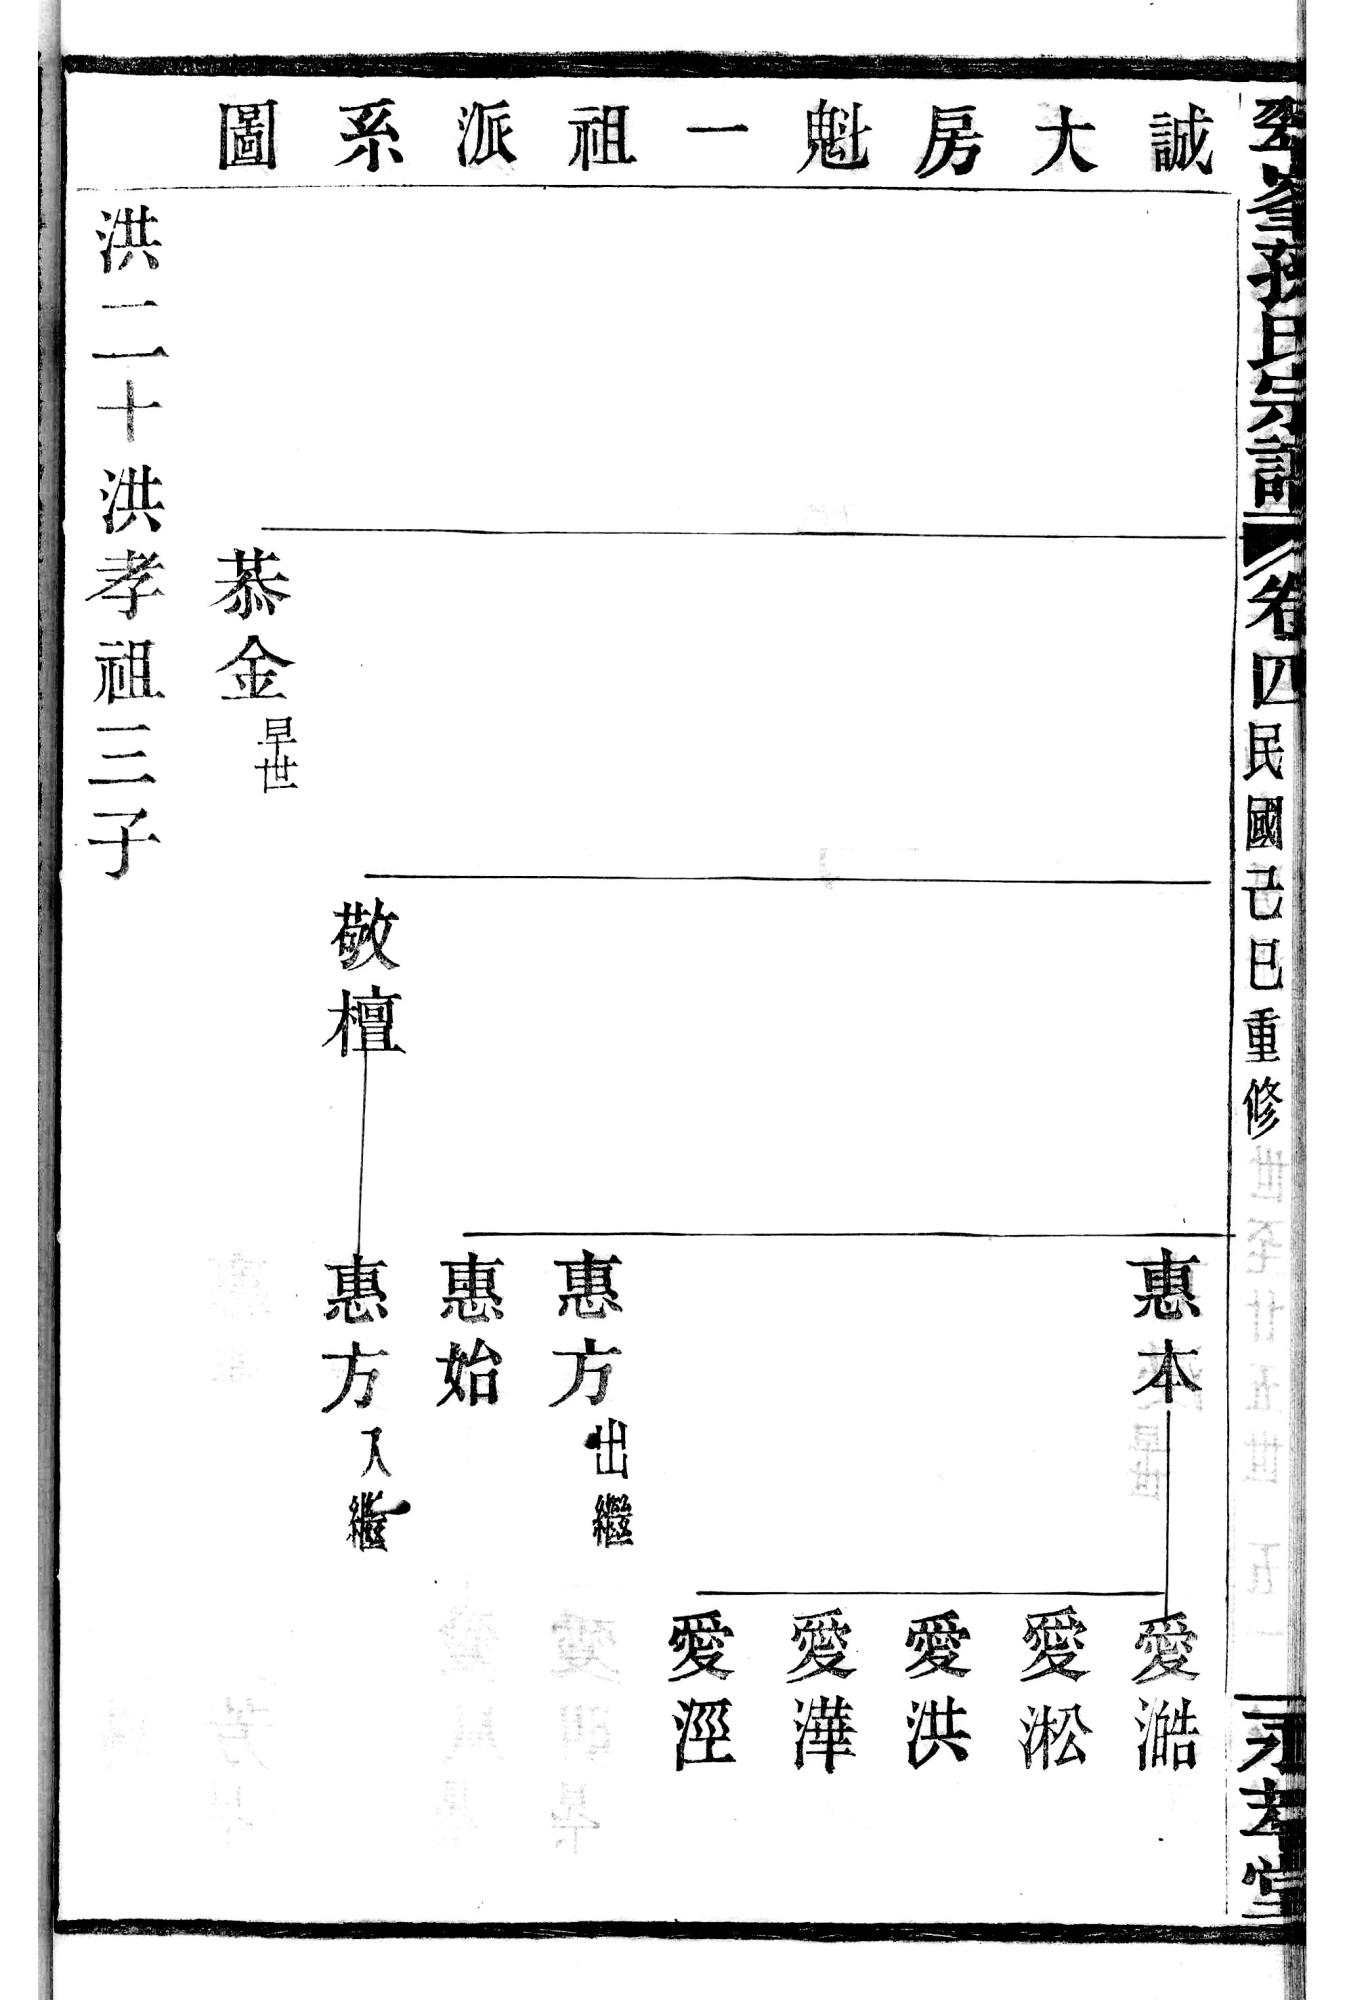 孫氏宗譜 卷四 民國己巳重修
堂
誠大房魁一祖派系圖
惠本
愛澔
愛淞
愛洪
愛澕
愛涇
惠方 出繼
惠始
敬檀
惠方 入繼
恭金 早世
洪二十洪孝祖三子